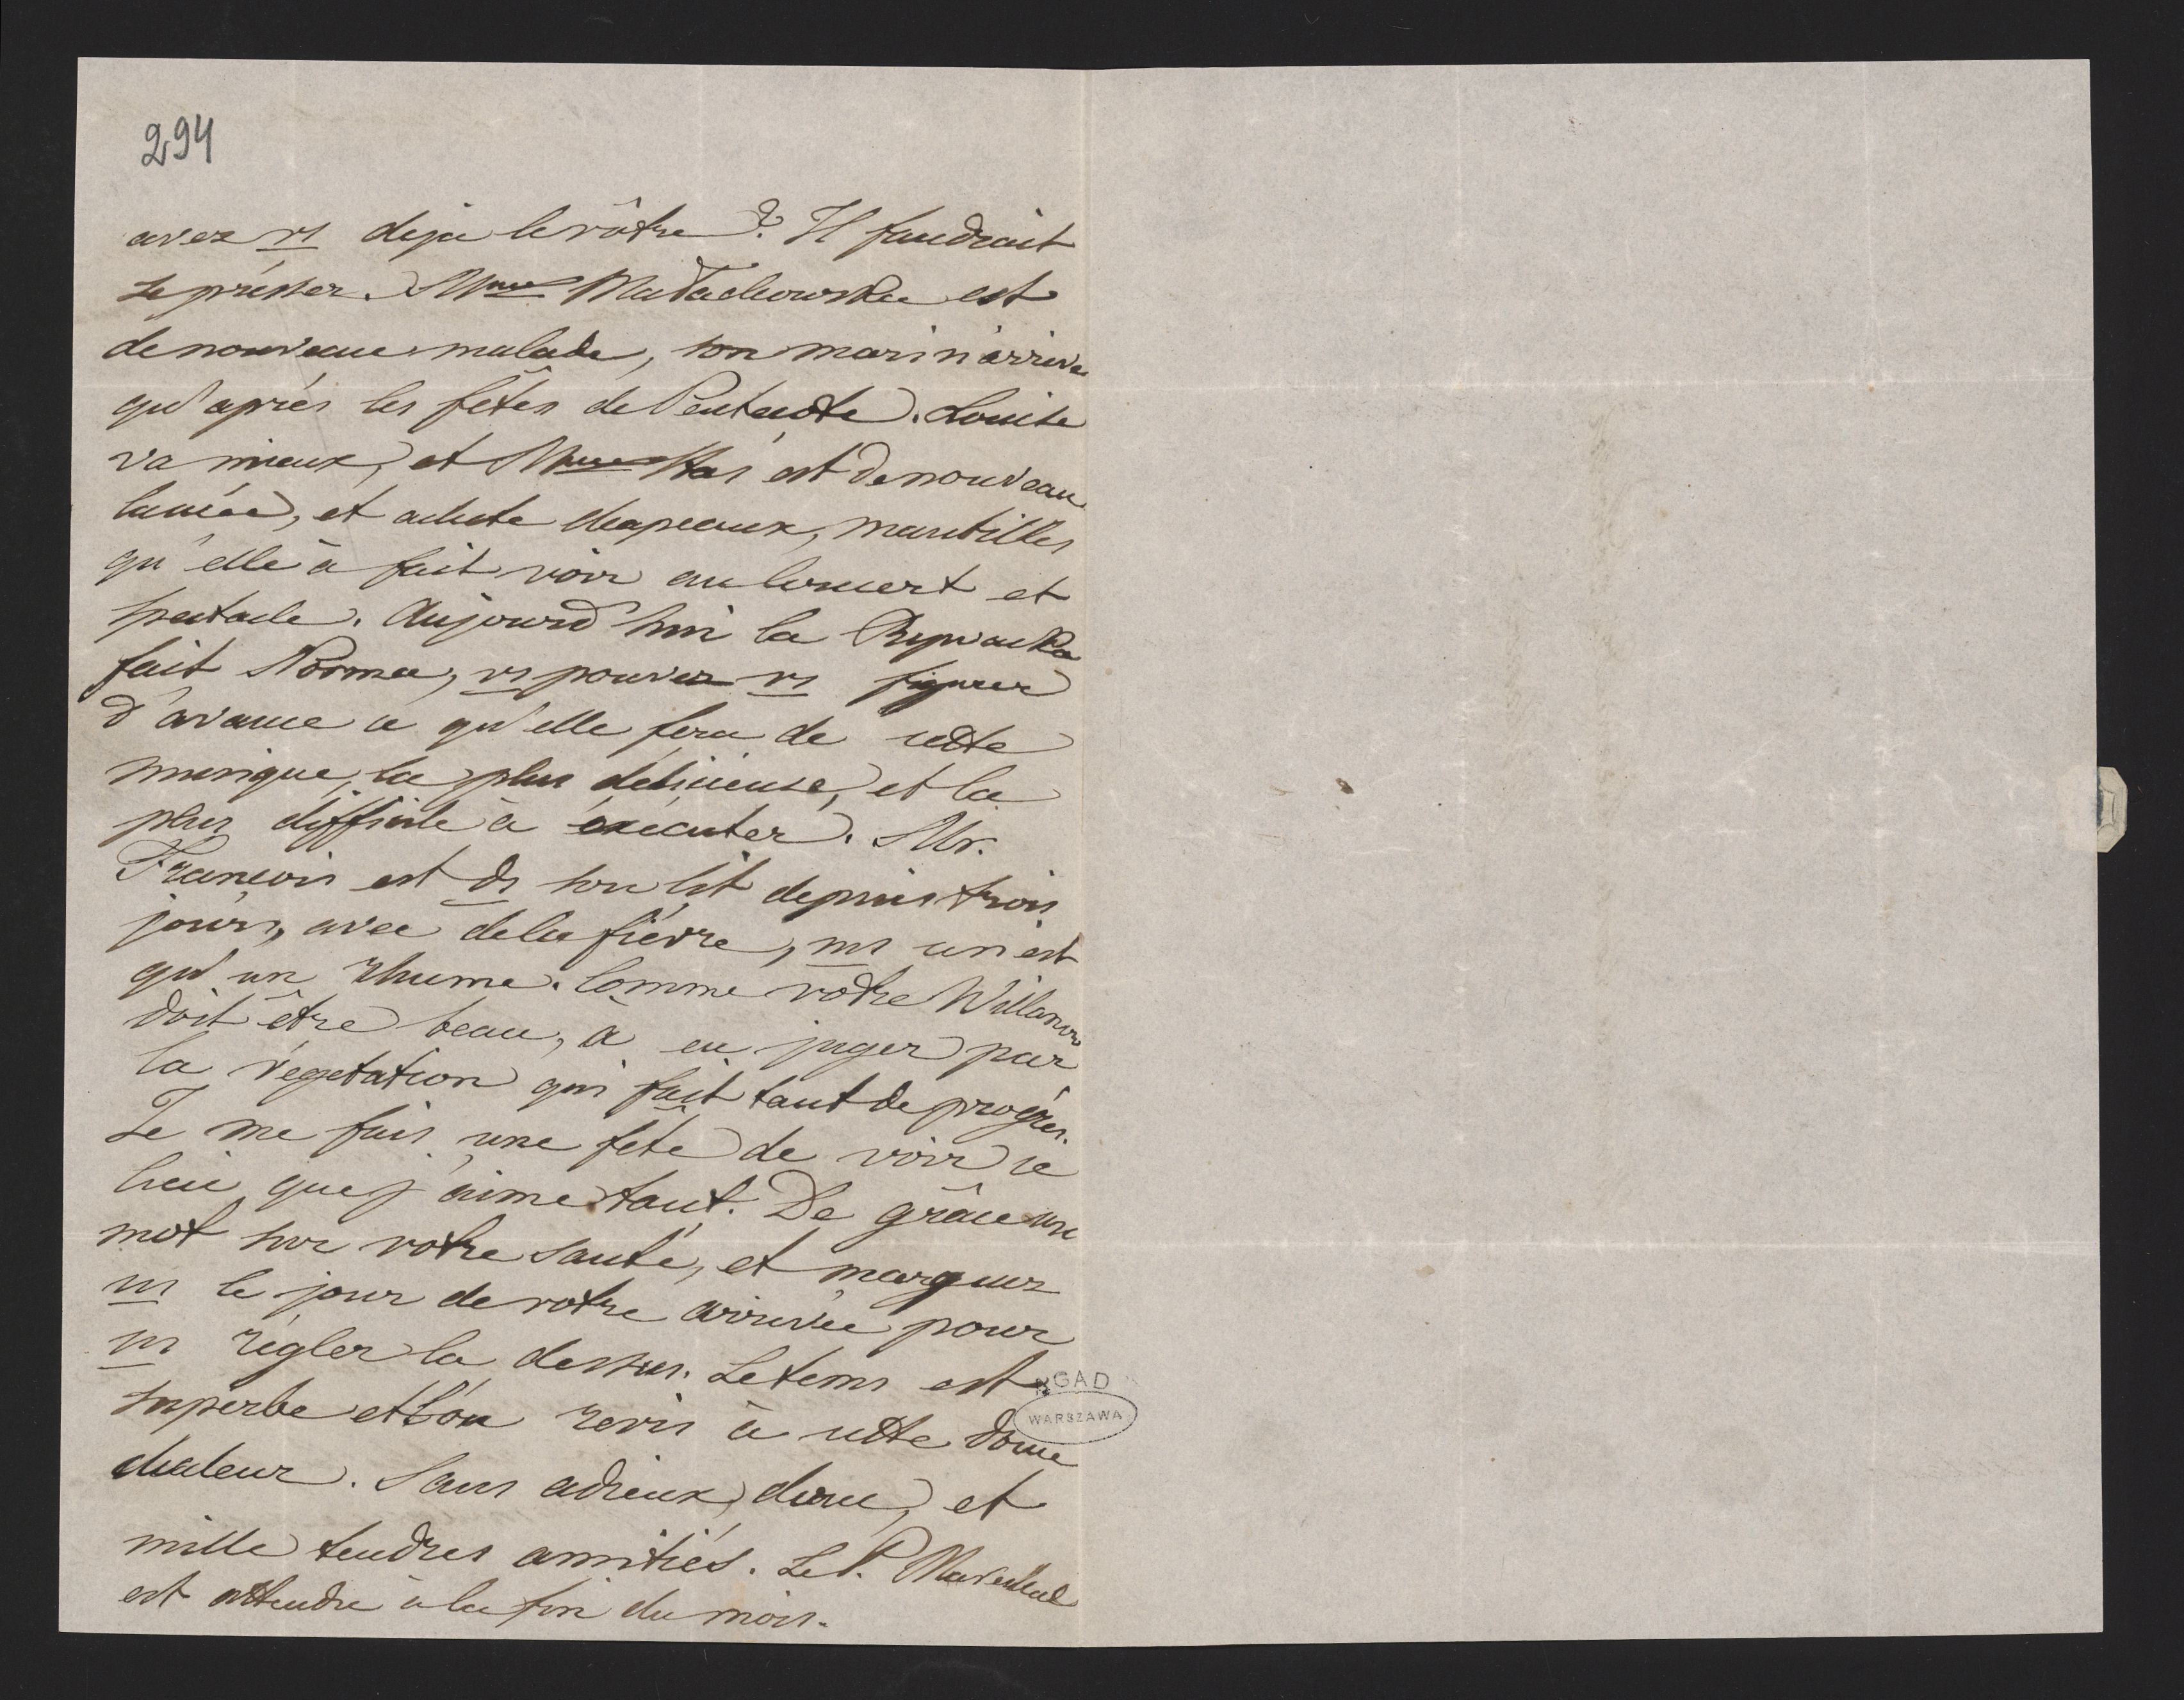 294
avez vs deja le vôtre? Il faudrait
se présser. Mme Małachowska est
de nouveau malade, son mari n'arrive
qu'aprés les fêtes de Pentecôte. Louise
va mieux, et Mme Stas est de nouveau
lancée, et achete chapeaux, mantilles
qu'elle à fait voir au concert et
spectacle. Aujourd'hui la Rywacka
fait Norma, vs pouvez vs figurer
d'avance ce qu'elle fera de cette
musique, la plus delicieuse, et la
plus difficile à éxécuter. Mr.
François est ds son lit depuis trois
jours, avec de la fiévre, ms ce n'est
qu'un rhume. Comme votre Willanow
doit être beau, a en juger par
la végetation qui fait tant de progrés.
Je me fais une fête de voir ce
lieu que j'aime tant. De grâce un
mot sur votre santé, et marquez
ns le jour de votre arrivée pour
ns régler la dessus. Le tems est
superbe et l'on revis à cette douce
chaleur. Sans adieux, donc, et
mille tendres amitiés. Le P. Marechal
est attendu à la fin du mois.
AGAD
WARSZAWA